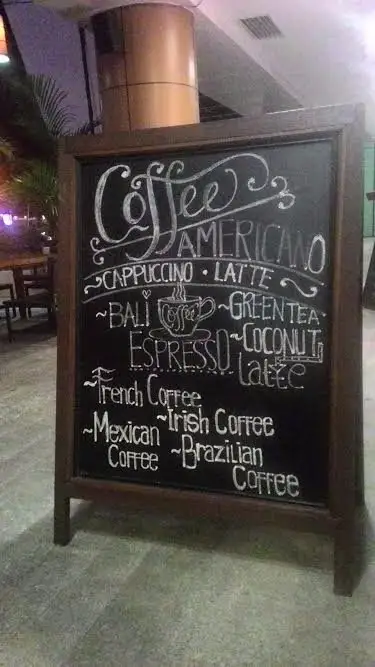 Coffee
AMERICANO
~CAPPUCCINO · LATTE~
~BALI ~GREEN TEA
Coffee
ESPRESSO ~COCONUT
Latte
~French Coffee
~Irish Coffee
~Mexican Coffee
~Brazilian Coffee